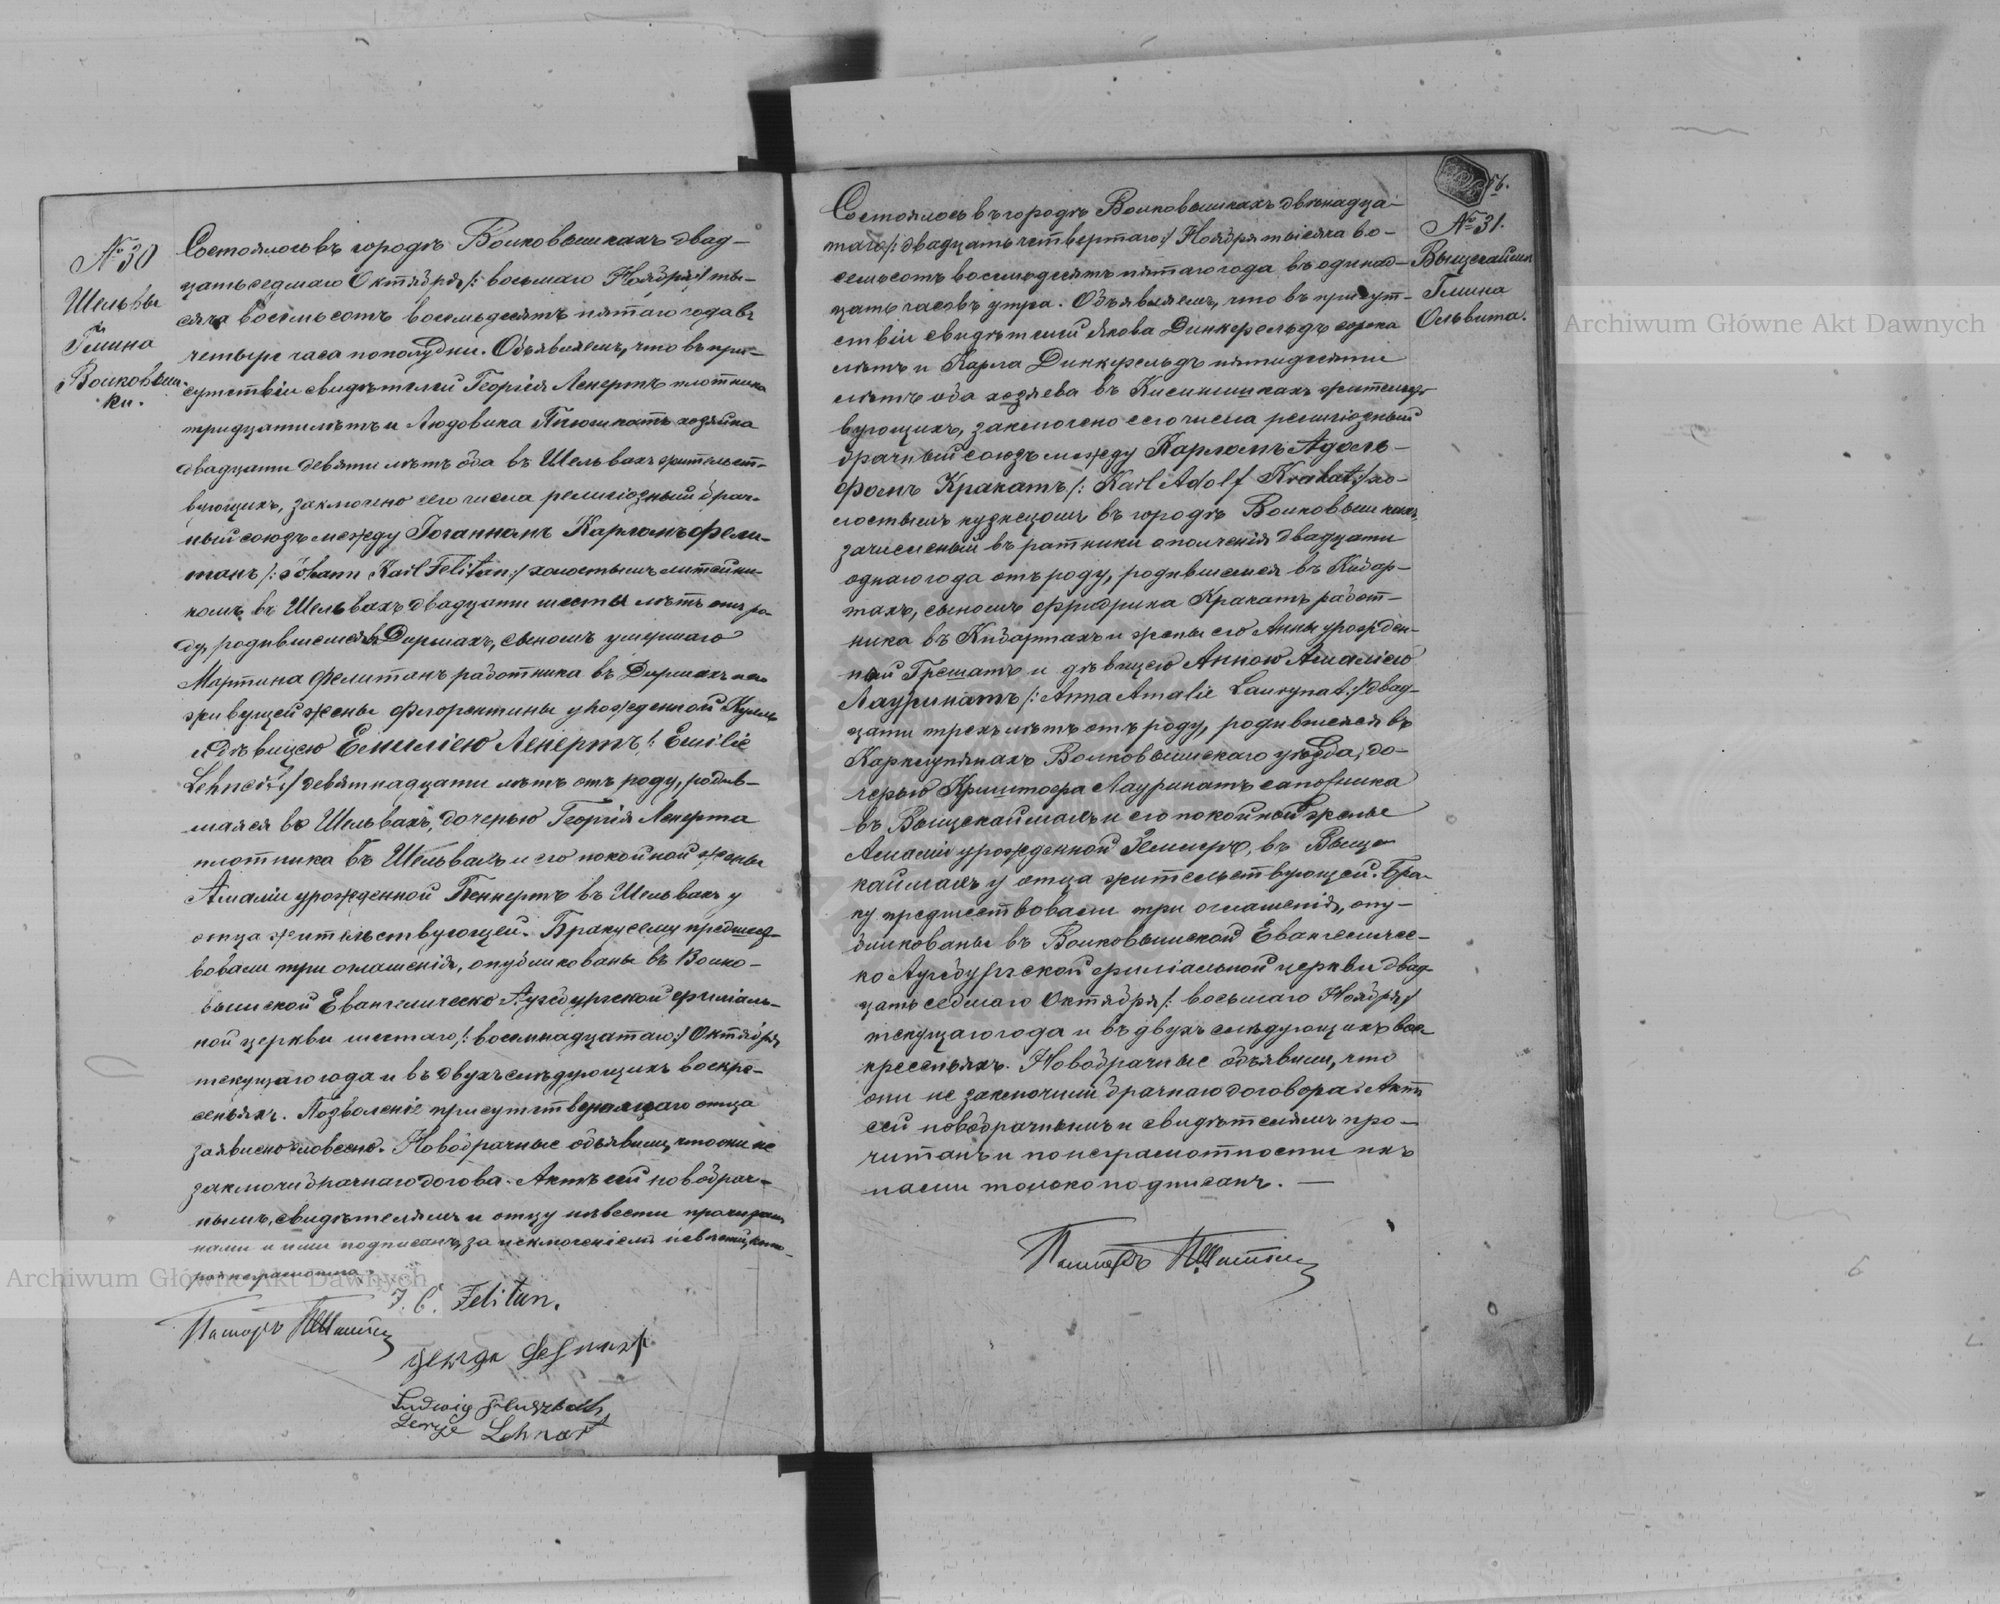 № 30
Шельвы
Гмина
Волковыш-
ки.
Состоялось въ городѣ Волковышкахъ двад-
цать седмаго Октября /: восьмаго Ноября :/ ты-
сяча восемьсотъ восемьдесятъ пятаго года въ
четыре часа пополудни. Объявляемъ, что въ при-
сутствіи свидѣтелей Георгія Ленертъ плотника
тридцати лѣтъ и Людовика хозяйна
двадцати девяти лѣтъ оба въ Шельвахъ жительст-
вующихъ, заключено сего числа религіозный брач-
ный союзъ между Іоганномъ Карломъ Фели-
танъ /: Johann Karl Felitan :/ холостымъ литейни-
комъ въ Шельвахъ двадцати шести лѣтъ отъ ро-
ду, родившемся въ Дирмахъ, сыномъ умершаго
Мартина Фелитанъ работника въ Дирмахъ и
живущей жены Флорентины урожденной
и дѣвицею Емиліею Ленертъ /: Emilie
Lehnert :/ девятнадцати лѣтъ отъ роду, родив-
шаяся въ Шельвахъ, дочерью Георгія Ленерта
плотника въ Шельвахъ и его покойной жены
Амаліи урожденной Беннертъ въ Шельвахъ у
отца жительствующей. Браку сему предшест-
вовали три оглашенія, опубликованы въ Волко-
вышской Евангелическо Аугсбургской филіаль-
ной церкви шестаго /: восемнадцатаго :/ Октября
текущаго года и въ двухъ слѣдующихъ воскре-
сеньяхъ. Позволеніе присутствующаго отца
заявлено словесно. Новобрачные объявили, что они не
заключи брачнаго догова. Актъ сей новобрач-
нымъ, свидѣтелямъ и отцу невѣсты прочитанъ
нами и ими подписанъ, за исключеніемъ невѣсты, кото-
рая неграмотна.
J. C. Felitan.
Пасторъ
George Lehnert
Ludwig
George Lehnart
56.
№ 31.
Выщкайми
Гмина
Ольвита.
Состоялось въ городѣ Волковышкахъ двѣнадца-
таго /: двадцать четвертаго :/ Ноября тысяча во-
семьсотъ восемьдесятъ пятаго года въ одинад-
цать часовъ утра. Объявляемъ, что въ присут-
ствіи свидѣтелей Якова Динкфельдъ сорока
лѣтъ и Карла Динкфельдъ пятидесяти
лѣтъ оба хозяева въ жительст-
вующихъ, заключено сего числа религіозный
брачный союзъ между Карломъ Адоль-
фомъ Кракатъ /: Karl Adolf Krakat :/ хо-
лостымъ кузнецомъ въ городѣ Волковышкахъ,
зачисленый въ ратники ополченія двадцати
однаго года отъ роду, родившемся въ Кибар-
тахъ, сыномъ Фридриха Кракатъ работ-
ника въ Кибартахъ и жены его Анны урожден-
ный Грешатъ и дѣвицею Анною Амаліею
Лауринатъ /: Anna Amalie Laurynat :/ двад-
цати трехъ лѣтъ отъ роду, родившаяся въ
Карклупянахъ Волковышскаго уѣзда, до-
черью Криштофа Лауринатъ сапожника
въ Выщкаймахъ и его покойной жены
Амаліи урожденной въ Выще-
каймахъ у отца жительствующей. Бра-
ку предшествовали три оглашенія, опу-
бликованы въ Волковышской Евангеличес-
ко Аугсбургской филіальной церкви двад-
цать седмаго Октября /: восьмаго Ноября :/
текущаго года и въ двухъ слѣдующихъ вос-
кресеньяхъ. Новобрачные объявили, что
они не заключили брачнаго договора. Актъ
сей новобрачнымъ и свидѣтелямъ про-
читанъ и по неграмотности ихъ
нами только подписанъ. —
Пасторъ
Archiwum Główne Akt Dawnych
Archiwum Główne Akt Dawnych